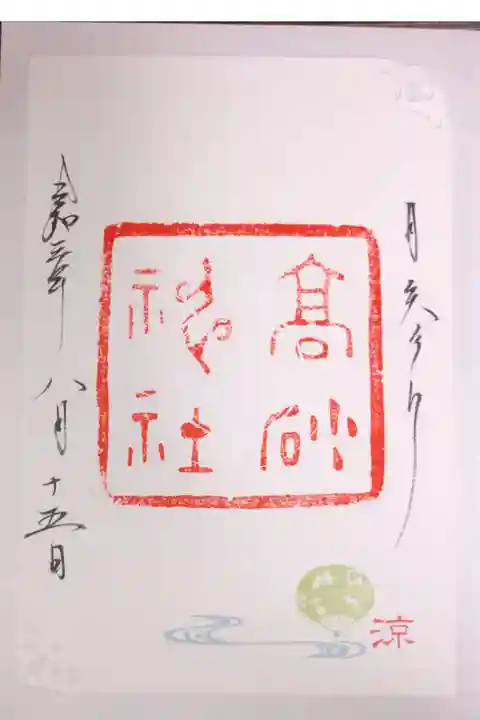 月参り
髙砂
神社
令和三年 八月十五日
涼